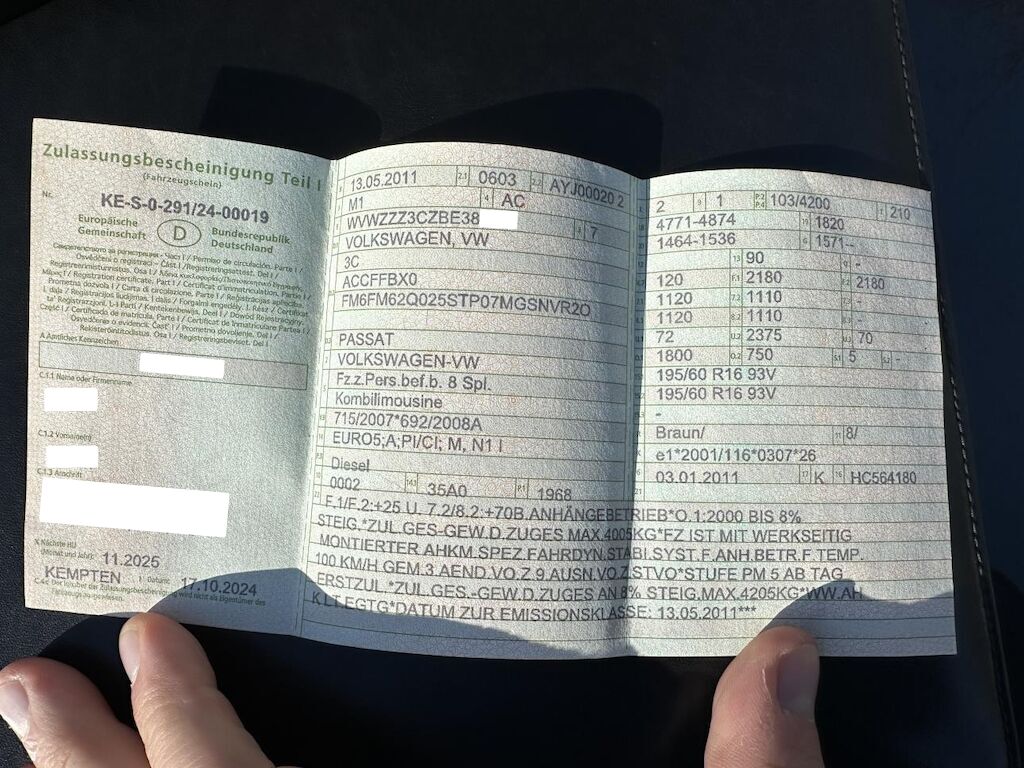 Zulassungsbescheinigung Teil I
(Fahrzeugschein)
Nr. KE-S-0-291/24-00019
Europäische Gemeinschaft D Bundesrepublik Deutschland
A Amtliches Kennzeichen
C.1.1 Name oder Firmenname
C.1.2 Vorname(n)
C.1.3 Anschrift
X Nächste HU
(Monat und Jahr) 11.2025
KEMPTEN Datum: 17.10.2024
13.05.2011 2.1 0603 2.2 AYJ00020 2
M1 4 AC
WVWZZZ3CZBE38 3 7
VOLKSWAGEN, VW
3C
ACCFFBX0
FM6FM62Q025STP07MGSNVR2O
PASSAT
VOLKSWAGEN-VW
Fz.z.Pers.bef.b. 8 Spl.
Kombilimousine
715/2007*692/2008A
EURO5;A;PI/CI; M, N1 I
Diesel
0002 14.1 35A0 P.1 1968
2 9 1 P.2 P.4 103/4200 T 210
4771-4874 19 1820
1464-1536 G 1571-
13 90 Q -
120 F.1 2180 F.2 2180
1120 7.2 1110 -
1120 8.2 1110 -
72 U.2 2375 U.3 70
1800 O.2 750 S.1 5 S.2 -
195/60 R16 93V
195/60 R16 93V
-
Braun/ 11 8/
e1*2001/116*0307*26
03.01.2011 17 K 16 HC564180
F.1/F.2:+25 U. 7.2/8.2:+70B.ANHÄNGEBETRIEB*O.1:2000 BIS 8%
STEIG.*ZUL GES-GEW.D.ZUGES MAX.4005KG*FZ IST MIT WERKSEITIG
MONTIERTER AHKM.SPEZ.FAHRDYN.STABI.SYST.F.ANH.BETR.F TEMP.
100 KM/H GEM.3.AEND.VO.Z.9 AUSN.VO.Z.STVO*STUFE PM 5 AB TAG
ERSTZUL.*ZUL.GES.-GEW.D.ZUGES AN 8% STEIG.MAX.4205KG*WW.AH
K.LT.EGTG*DATUM ZUR EMISSIONSKLASSE: 13.05.2011***